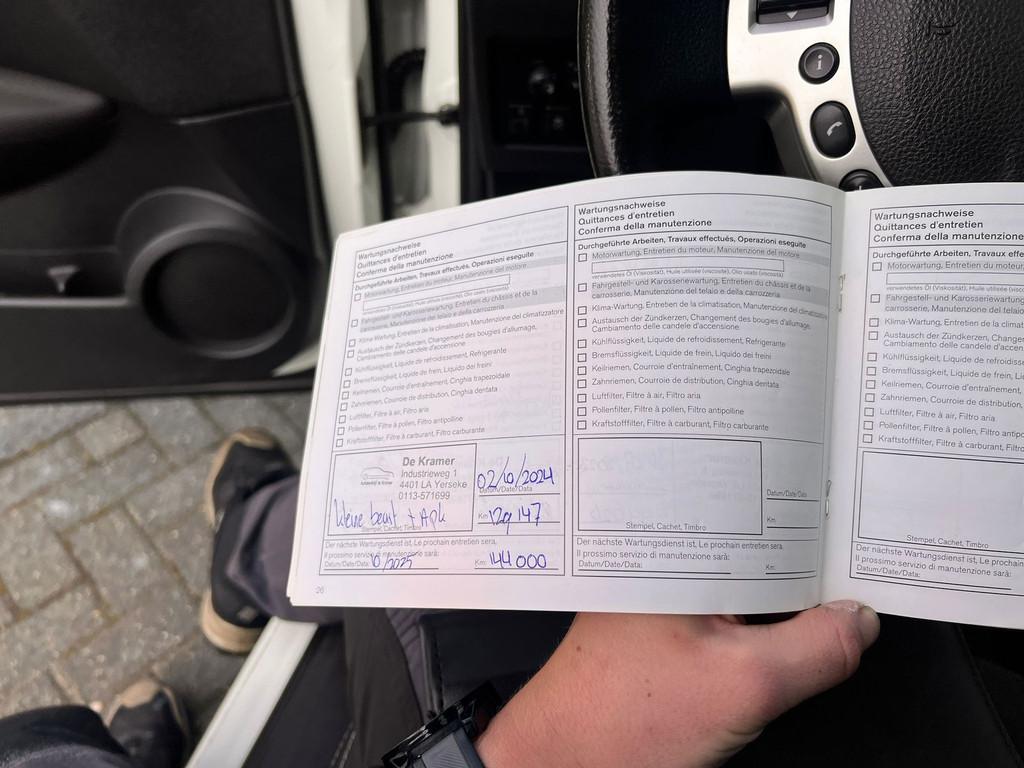 Wartungsnachweise
Quittances d'entretien
Conferma della manutenzione
Durchgeführte Arbeiten, Travaux effectués, Operazioni eseguite
Motorwartung, Entretien du moteur, Manutenzione del motore
verwendetes Öl (Viskosität), Huile utilisée (viscosité), Olio usato (viscosità)
Fahrgestell- und Karosseriewartung, Entretien du châssis et de la
carrosserie, Manutenzione del telaio e della carrozzeria
Klima-Wartung, Entretien de la climatisation, Manutenzione del climatizzatore
Austausch der Zündkerzen, Changement des bougies d'allumage,
Cambiamento delle candele d'accensione
Kühlflüssigkeit, Liquide de refroidissement, Refrigerante
Bremsflüssigkeit, Liquide de frein, Liquido dei freini
Keilriemen, Courroie d'entraînement, Cinghia trapezoidale
Zahnriemen, Courroie de distribution, Cinghia dentata
Luftfilter, Filtre à air, Filtro aria
Pollenfilter, Filtre à pollen, Filtro antipolline
Kraftstofffilter, Filtre à carburant, Filtro carburante
De Kramer
Industrieweg 1
4401 LA Yerseke
0113-571699
kleine beurt + Apk
Stempel, Cachet, Timbro
02/10/2024
Datum/Date/Data
Km: 129 147
Der nächste Wartungsdienst ist, Le prochain entretien sera,
Il prossimo servizio di manutenzione sarà:
Datum/Date/Data: 10/2025 Km: 144 000
26
Wartungsnachweise
Quittances d'entretien
Conferma della manutenzione
Durchgeführte Arbeiten, Travaux effectués, Operazioni eseguite
Motorwartung, Entretien du moteur, Manutenzione del motore
verwendetes Öl (Viskosität), Huile utilisée (viscosité), Olio usato (viscosità)
Fahrgestell- und Karosseriewartung, Entretien du châssis et de la
carrosserie, Manutenzione del telaio e della carrozzeria
Klima-Wartung, Entretien de la climatisation, Manutenzione del climatizzatore
Austausch der Zündkerzen, Changement des bougies d'allumage,
Cambiamento delle candele d'accensione
Kühlflüssigkeit, Liquide de refroidissement, Refrigerante
Bremsflüssigkeit, Liquide de frein, Liquido dei freini
Keilriemen, Courroie d'entraînement, Cinghia trapezoidale
Zahnriemen, Courroie de distribution, Cinghia dentata
Luftfilter, Filtre à air, Filtro aria
Pollenfilter, Filtre à pollen, Filtro antipolline
Kraftstofffilter, Filtre à carburant, Filtro carburante
Stempel, Cachet, Timbro
Datum/Date/Data
Km:
Der nächste Wartungsdienst ist, Le prochain entretien sera,
Il prossimo servizio di manutenzione sarà:
Datum/Date/Data: Km:
Wartungsnachweise
Quittances d'entretien
Conferma della manutenzione
Durchgeführte Arbeiten, Travaux effectués, Ope
Motorwartung, Entretien du moteur
verwendetes Öl (Viskosität), Huile utilisée (visc
Fahrgestell- und Karosseriewartung
carrosserie, Manutenzione del telaio
Klima-Wartung, Entretien de la climat
Austausch der Zündkerzen, Changem
Cambiamento delle candele d'accen
Kühlflüssigkeit, Liquide de refroidiss
Bremsflüssigkeit, Liquide de frein, Li
Keilriemen, Courroie d'entraînement,
Zahnriemen, Courroie de distribution,
Luftfilter, Filtre à air, Filtro aria
Pollenfilter, Filtre à pollen, Filtro antipo
Kraftstofffilter, Filtre à carburant, Filtr
Stempel, Cachet, Timbro
Der nächste Wartungsdienst ist, Le prochain
Il prossimo servizio di manutenzione sarà:
Datum/Date/Data: